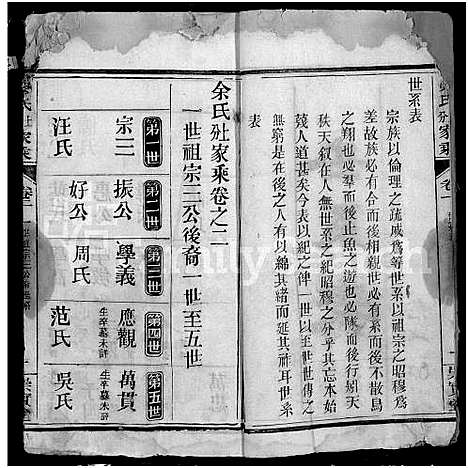 世系表
宗族以倫理之疏戚為等世系以祖宗之昭穆為
差故族必有系而後相親世必有系而後不散鳥
之翔也必羣而後止魚之遊也必隊而後行別天
秩天叙在人無世系之紀昭穆之分乎其忘本
殘人道甚矣今表以紀之俾一世以至世世傳之
無窮者是在後之人有以綿其緒而延其祚耳世系
表
余氏㘰家乘卷之二
一世祖宗三公後裔一世至五世
第一世
宗三
汪氏
第二世
振公
好公
第三世
學義
周氏
第四世
應觀
生卒墓未詳
范氏
第五世
萬貫
生卒墓未詳
吳氏